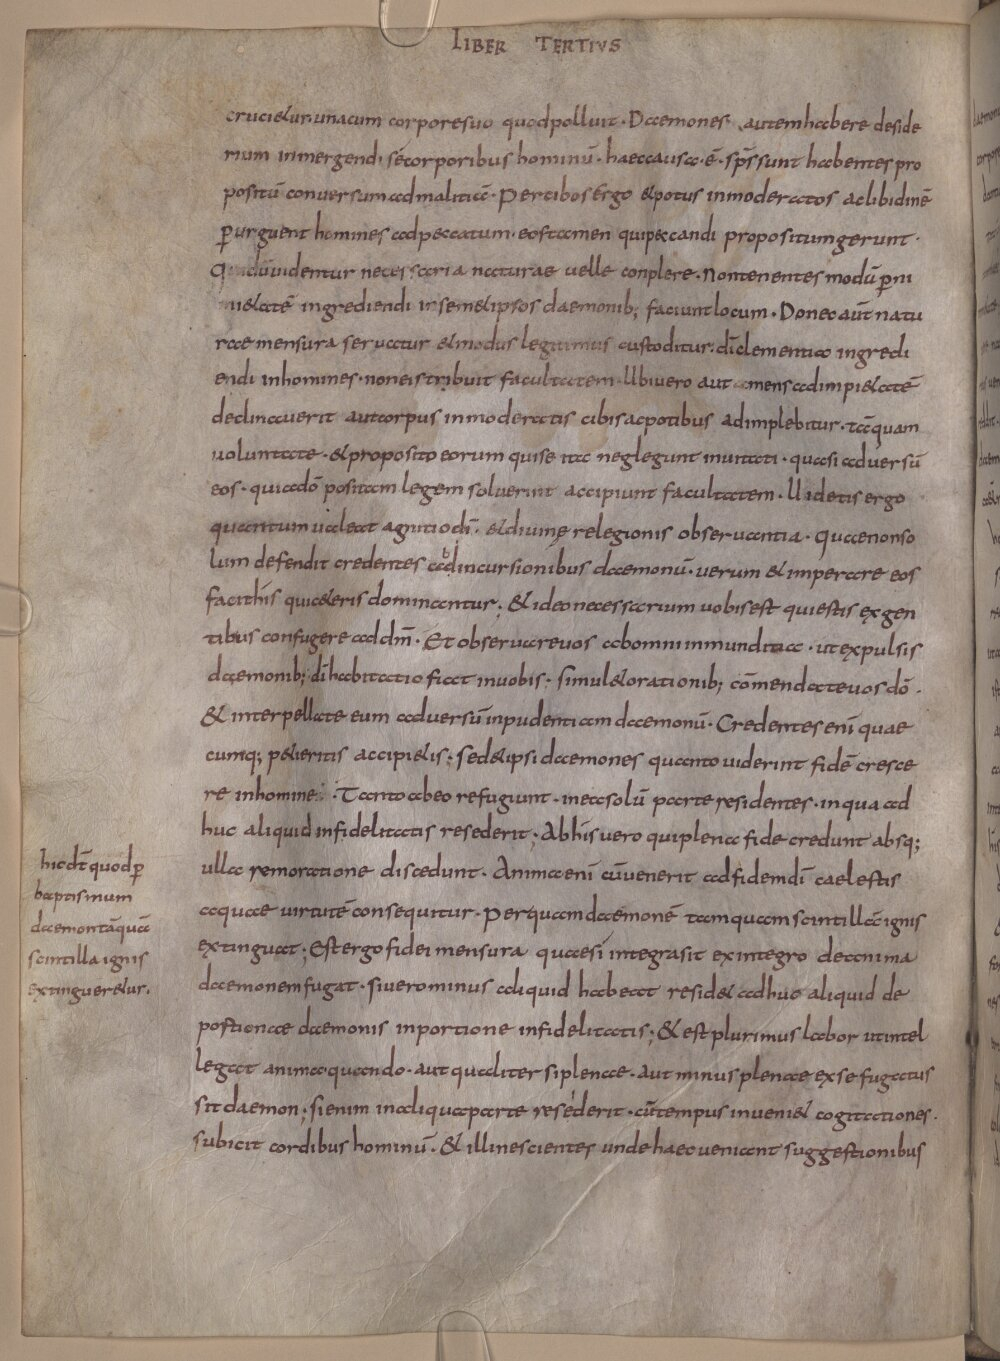 LIBER TERTIVS
crucietur unacum corpore suo quod polluit · Daemones autem habere deside
rium inmergendi sé corporibus hominū · haec causa · ē · sp̄s sunt habentes pro
positū conversum ad malitiā · Per cibos ergo & potus inmoderatos ac libidinē
ꝑurguent homines ad peccatum · eos tamen qui peccandi propositum gerunt ·
Qui dū videntur necessaria naturae uelle conplere · Non tenentes modū ꝑ ni
mi&atē ingrediendi in semetipsos daemonib; faciunt locum · Donec aut̄ natu
rae mensura seruatur & modus legitimus custoditur · dī clementia ingredi
endi in homines · non eis tribuit facultatem · Ubi uero aut mens ad impi&atē
declinauerit aut corpus inmoderatis cibis ac potibus adimplebitur · tāquam
uoluntate · & proposito eorum qui se ita neglegunt inuitati · quasi aduersū
eos · qui a dō positam legem soluerint accipiunt facultatem · Uidetis ergo
quantum ualeat agnitio dī · & diuinę relegionis obseruantia · quae non so
lum defendit credentes ab incursionibus daemonū · uerum & imperare eos
facit his qui c&eris dominantur; & ideo necessarium uobis est qui estis ex gen
tibus confugere ad dm̄ · Et obseruare uos ab omni inmunditia · ut expulsis
daemonib; dī habitatio fiat in uobis; simul & orationib; cōmendate uos dō ·
& interpellate eum aduersū inpudentiam daemonū · Credentes enī quae
cumq; petieritis accipietis; sed & ipsi daemones quanto uiderint fidē cresce
re in homine · Tanto ab eo refugiunt · in ea solū parte residentes · in qua ad
huc aliquid infidelitatis resederit; Ab his uero qui plena fide credunt absq;
ulla remoratione discedunt · Anima enī cū uenerit ad fidem dī caelestis
aquae uirtutē consequitur · per quam daemonē tamquam scintillā ignis
extinguat; Est ergo fidei mensura quae si integra sit ex integro de anima
daemonem fugat · si uero minus aliquid habeat resid& adhuc aliquid de
postionae daemonis in portione infidelitatis; & est plurimus labor ut intel
legat anima quando · aut qualiter si plenae · aut minus plenae ex se fugatus
sit daemon; si enim in aliqua parte resederit · cū tempus inueni& cogitationes ·
subicit cordibus hominū · & illi nescientes unde haec ueniant suggestionibus
hic dt̄ quod ꝑ
baptismum
daemon tāquā
scintilla ignis
extinguer&ur ·